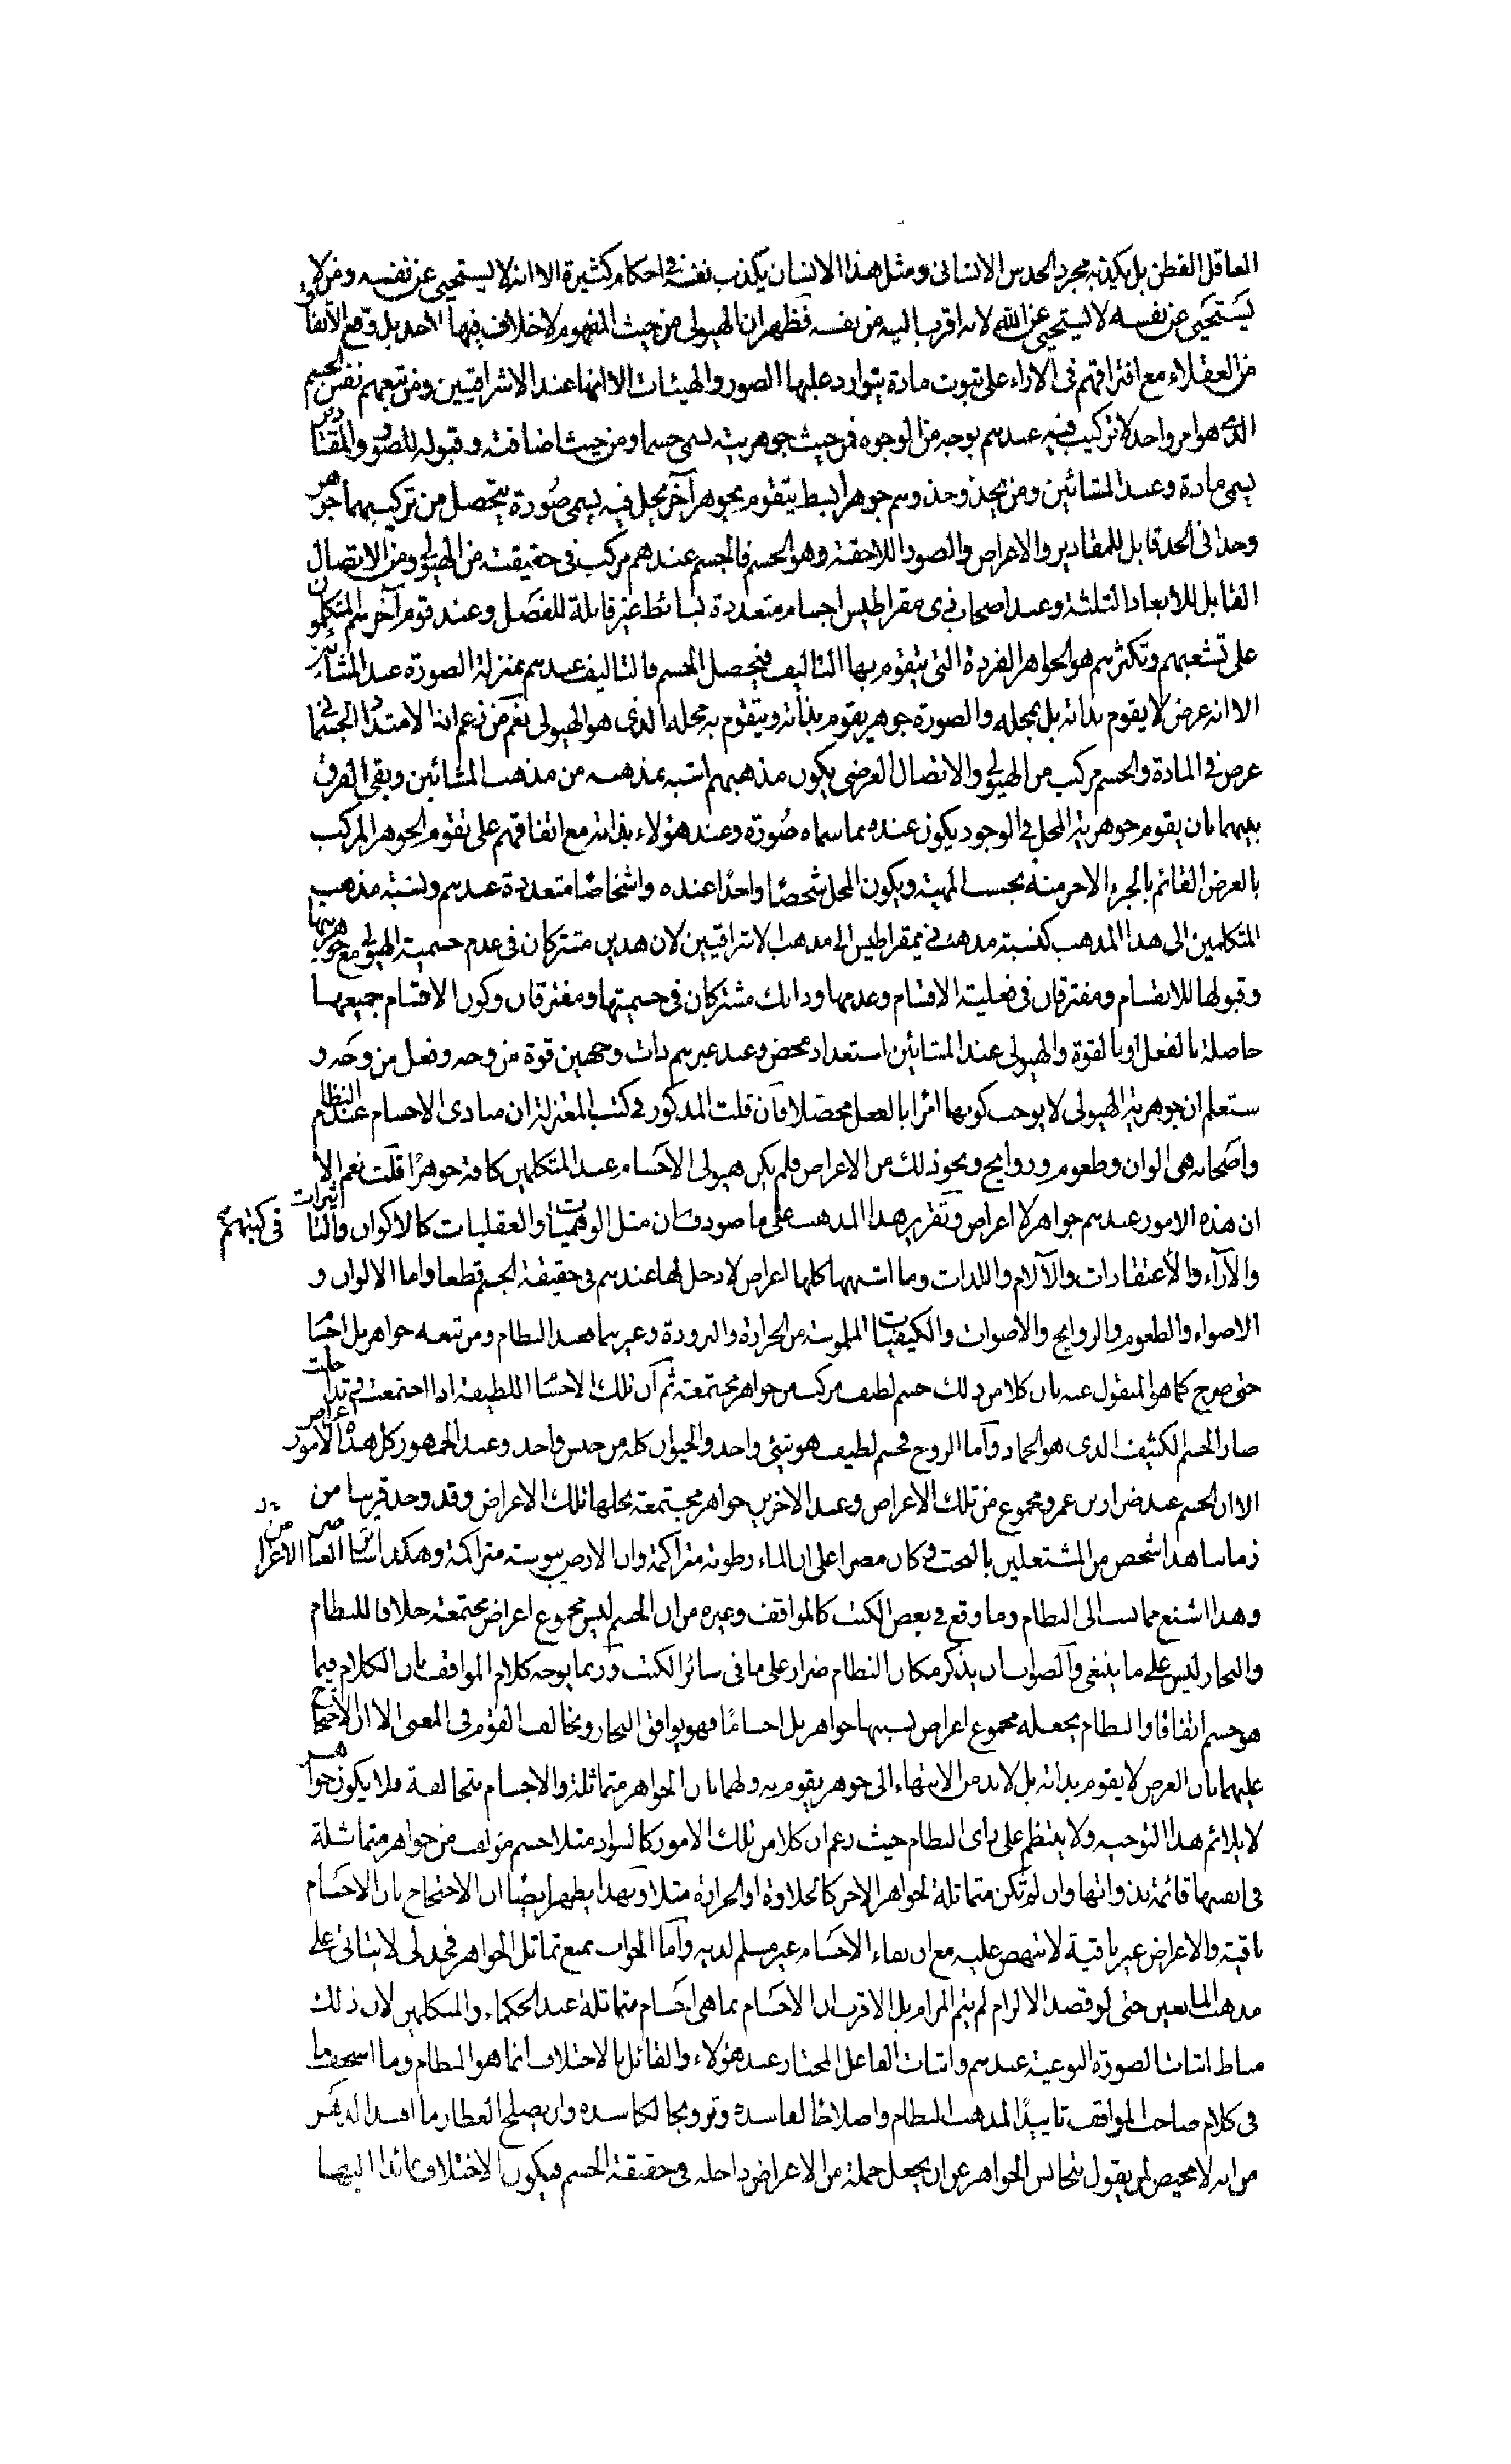 العاقل الفطن بل يكذبه مجرد الحدس الانسانى ومثل هذا الانسان يكذب نفسه فى احكام كثيرة الا انه لا يستحيى عن نفسه ومن لا
يستحيى عن نفسه لا يستحيى عن الله لانه اقرب اليه من نفسه فظهر ان الهيولى من حيث المفهوم لا خلاف فيها لاحد بل وقع الاتفاق
من العقلاء مع افتراقهم فى الاراء على ثبوت مادة يتوارد عليها الصور والهيئات الا انها عند الاشراقيين ومن تبعهم نفس الجسم
الذى هو امر واحد لا تركيب فيه عندهم بوجه من الوجوه فمن حيث جوهريته يسمى جسما ومن حيث اضافته وقبوله للصور والمقادير
يسمى مادة وعند المشائين ومن يحذو حذوهم جوهر ابسط يتقوم بجوهر آخر يحل فيه يسمى صورة يتحصل من تركيبهما جوهر
وحدانى الحد قابل للمقادير والاعراض والصور اللاحقة وهو الجسم فالجسم عندهم مركب فى حقيقته من الهيولى ومن الاتصال
القابل للابعاد الثلثة وعند اصحاب ذى مقراطيس اجسام متعددة بسائط غير قابلة للفصل وعند قوم آخر هم المتكلمون
على تشعبهم وتكثرهم هو الجواهر الفردة التى يتقوم بها التاليف فيحصل الجسم فالتاليف عندهم بمنزلة الصورة عند المشائين
الا انه عرض لا يقوم بذاته بل بمحله والصورة جوهر يقوم بذاته ويتقوم به محله الذى هو الهيولى نعم من زعم ان الامتداد الجسمانى
عرض فى المادة والجسم مركب من الهيولى والاتصال العرضى يكون مذهبهم اشبه بمذهبه من مذهب المشائين وبقى الفرق
بينهما بان يقوم جوهرية المحل فى الوجود يكون عنده بما سماه صورة وعند هؤلاء بذاته مع اتفاقهم على تقوم الجوهر المركب
بالعرض القائم بالجزء الاخر منه بحسب المهية ويكون المحل شخصا واحدا عنده واشخاصا متعددة عندهم ونسبة مذهب
المتكلمين الى هذا المذهب كنسبة مذهب ذيمقراطيس الى مذهب الاشراقيين لان هذين مشتركان فى عدم جسمية الهيولى مع جوهريتها
وقبولها للانقسام ومفترقان فى فعلية الاقسام وعدمها وذانك مشتركان فى جسميتها ومفترقان وكون الاقسام جميعها
حاصلة بالفعل او بالقوة والهيولى عند المشائين استعداد محض وعند غيرهم ذات وجهين قوة من وجه وفعل من وجه و
ستعلم ان جوهرية الهيولى لا يوجب كونها امرا بالفعل محصلا فان قلت المذكور فى كتب المعتزلة ان مبادى الاجسام عند النظام
واصحابه هى الوان وطعوم وروايح ونحو ذلك من الاعراض فلم يكن هيولى الاجسام عند المتكلمين كافة جوهرا قلت نعم الا
ان هذه الامور عندهم جواهر لا اعراض وتقرير هذا المذهب على ما صودف ان مثل الوهميات والعقليات كالاكوان والتاثيرات فى كتبهم
والآراء والاعتقادات والآلام واللذات وما اشبهها كلها اعراض لا دخل لها عندهم فى حقيقة الجسم قطعا واما الالوان و
الاضواء والطعوم والروايح والاصوات والكيفيات الملموسة من الحرارة والبرودة وغيرهما فعند النظام ومن تبعه جواهر بل اجسام
حتى صرح كما هو المنقول عنه بان كلا من ذلك جسم لطيف مركب من جواهر مجتمعة ثم ان تلك الاجسام اللطيفة اذا اجتمعت وتداخلت
صار الجسم الكثيف الذى هو الجماد واما الروح فجسم لطيف هو شيئى واحد والحيوان كله من جنس واحد وعند الجمهور كل هذه الامور اعراض
الا ان الجسم عند ضرار بن عمرو مجموع من تلك الاعراض وعند الاخرين جواهر مجتمعة يحلها تلك الاعراض وقد وجد قريبا من
زماننا هذا شخص من المشتغلين بالبحث وكان مصرا على ان الماء رطوبة متراكمة وان الارض يبوسة متراكمة وهكذا
وهذا اشنع مما نسب الى النظام وما وقع فى بعض الكتب كالمواقف وغيره من ان الجسم ليس مجموع اعراض مجتمعة خلافا للنظام
والنجار ليس على ما ينبغى والصواب ان يذكر مكان النظام ضرار على ما فى سائر الكتب وربما يوجه كلام المواقف بان الكلام فيما
هو جسم اتفاقا والنظام يجعله مجموع اعراض يسميها جواهر بل اجساما فهو يوافق النجار ويخالف القوم فى المعنى الا ان الاحتجاج
عليهما بان العرض لا يقوم بذاته بل لابد من الانتهاء الى جوهر يقوم به ولهما بان الجواهر متماثلة والاجسام متخالفة فلا يكون جواهر
لا يلائم هذا التوجيه ولا ينتظم على راى النظام حيث زعم ان كلا من تلك الامور كالسواد مثلا جسم مؤلف من جواهر متماثلة
فى انفسها قائمة بذواتها وان لم تكن متماثلة لجواهر الاخر كالحلاوة او الحرارة مثلا وبهذا يظهر ايضا ان الاحتجاج بان الاجسام
باقية والاعراض غير باقية لا ينتهض عليه مع ان بقاء الاجسام غير مسلم لديه واما الجواب بمنع تماثل الجواهر فجدلى لا يتاتى على
مذهب المانعين حتى لو قصد الالزام لم يتم المرام بل الاقرب ان الاجسام بما هى اجسام متماثلة عند الحكماء والمتكلمين لان ذلك
مناط اثبات الصورة النوعية عندهم واثبات الفاعل المختار عند هؤلاء والقائل بالاختلاف انما هو النظام وما اسخف ما
فى كلام صاحب المواقف تاييدا لمذهب النظام واصلاحا لفاسده وترويجا لكاسده وان يصلح العطار ما افسد الدهر
من انه لا محيص لمن يقول بتجانس الجواهر عن ان يجعل جملة من الاعراض داخله فى حقيقة الجسم فيكون الاختلاف عائدا اليها